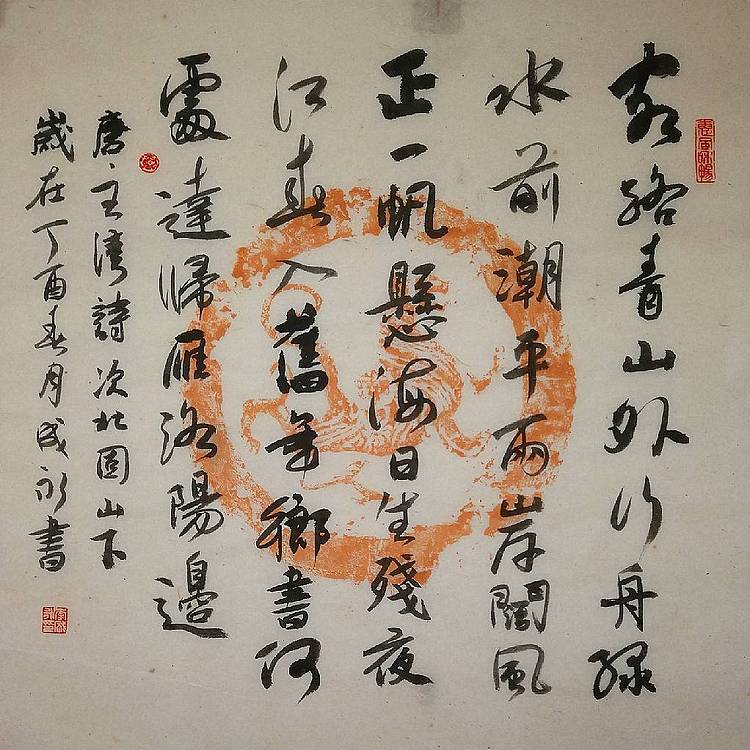 客路青山外行舟綠
水前潮平兩岸闊風
正一帆懸海日生殘夜
江春入舊年鄉書何
處達歸雁洛陽邊
唐王灣詩次北固山下
歲在丁酉春月成永書